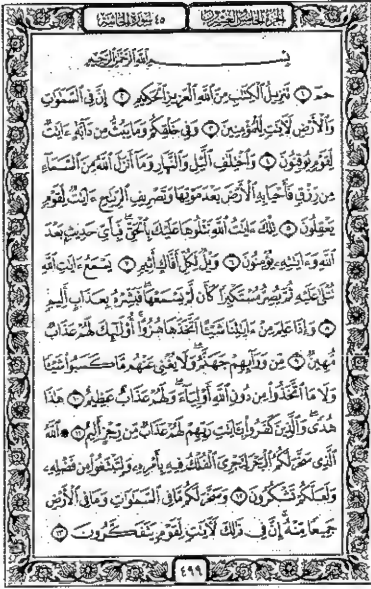 الجزء الخامس والعشرون ٤٥ سورة الجاثية
بسم الله الرحمن الرحيم
حمٓ ١ تَنزِيلُ ٱلْكِتَٰبِ مِنَ ٱللَّهِ ٱلْعَزِيزِ ٱلْحَكِيمِ ٢ إِنَّ فِى ٱلسَّمَٰوَٰتِ
وَٱلْأَرْضِ لَءَايَٰتٍ لِّلْمُؤْمِنِينَ ٣ وَفِى خَلْقِكُمْ وَمَا يَبُثُّ مِن دَآبَّةٍ ءَايَٰتٌ
لِّقَوْمٍ يُوقِنُونَ ٤ وَٱخْتِلَٰفِ ٱلَّيْلِ وَٱلنَّهَارِ وَمَآ أَنزَلَ ٱللَّهُ مِنَ ٱلسَّمَآءِ
مِن رِّزْقٍ فَأَحْيَا بِهِ ٱلْأَرْضَ بَعْدَ مَوْتِهَا وَتَصْرِيفِ ٱلرِّيَٰحِ ءَايَٰتٌ لِّقَوْمٍ
يَعْقِلُونَ ٥ تِلْكَ ءَايَٰتُ ٱللَّهِ نَتْلُوهَا عَلَيْكَ بِٱلْحَقِّ فَبِأَىِّ حَدِيثٍۭ بَعْدَ
ٱللَّهِ وَءَايَٰتِهِۦ يُؤْمِنُونَ ٦ وَيْلٌ لِّكُلِّ أَفَّاكٍ أَثِيمٍ ٧ يَسْمَعُ ءَايَٰتِ ٱللَّهِ
تُتْلَىٰ عَلَيْهِ ثُمَّ يُصِرُّ مُسْتَكْبِرًا كَأَن لَّمْ يَسْمَعْهَا فَبَشِّرْهُ بِعَذَابٍ أَلِيمٍ
٨ وَإِذَا عَلِمَ مِنْ ءَايَٰتِنَا شَيْـًٔا ٱتَّخَذَهَا هُزُوًا أُو۟لَٰٓئِكَ لَهُمْ عَذَابٌ
مُّهِينٌ ٩ مِّن وَرَآئِهِمْ جَهَنَّمُ وَلَا يُغْنِى عَنْهُم مَّا كَسَبُوا۟ شَيْـًٔا
وَلَا مَا ٱتَّخَذُوا۟ مِن دُونِ ٱللَّهِ أَوْلِيَآءَ وَلَهُمْ عَذَابٌ عَظِيمٌ ١٠ هَٰذَا
هُدًى وَٱلَّذِينَ كَفَرُوا۟ بِـَٔايَٰتِ رَبِّهِمْ لَهُمْ عَذَابٌ مِّن رِّجْزٍ أَلِيمٌ ١١ ۞ ٱللَّهُ
ٱلَّذِى سَخَّرَ لَكُمُ ٱلْبَحْرَ لِتَجْرِىَ ٱلْفُلْكُ فِيهِ بِأَمْرِهِۦ وَلِتَبْتَغُوا۟ مِن فَضْلِهِۦ
وَلَعَلَّكُمْ تَشْكُرُونَ ١٢ وَسَخَّرَ لَكُم مَّا فِى ٱلسَّمَٰوَٰتِ وَمَا فِى ٱلْأَرْضِ
جَمِيعًا مِّنْهُ إِنَّ فِى ذَٰلِكَ لَءَايَٰتٍ لِّقَوْمٍ يَتَفَكَّرُونَ ١٣
٤٩٩